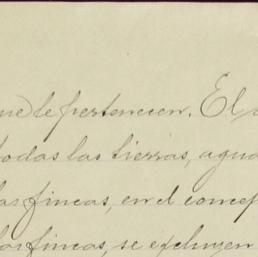 que le pertenecen. El
todas las tierras, agua
las fincas, en el concep
las fincas, se excluyen